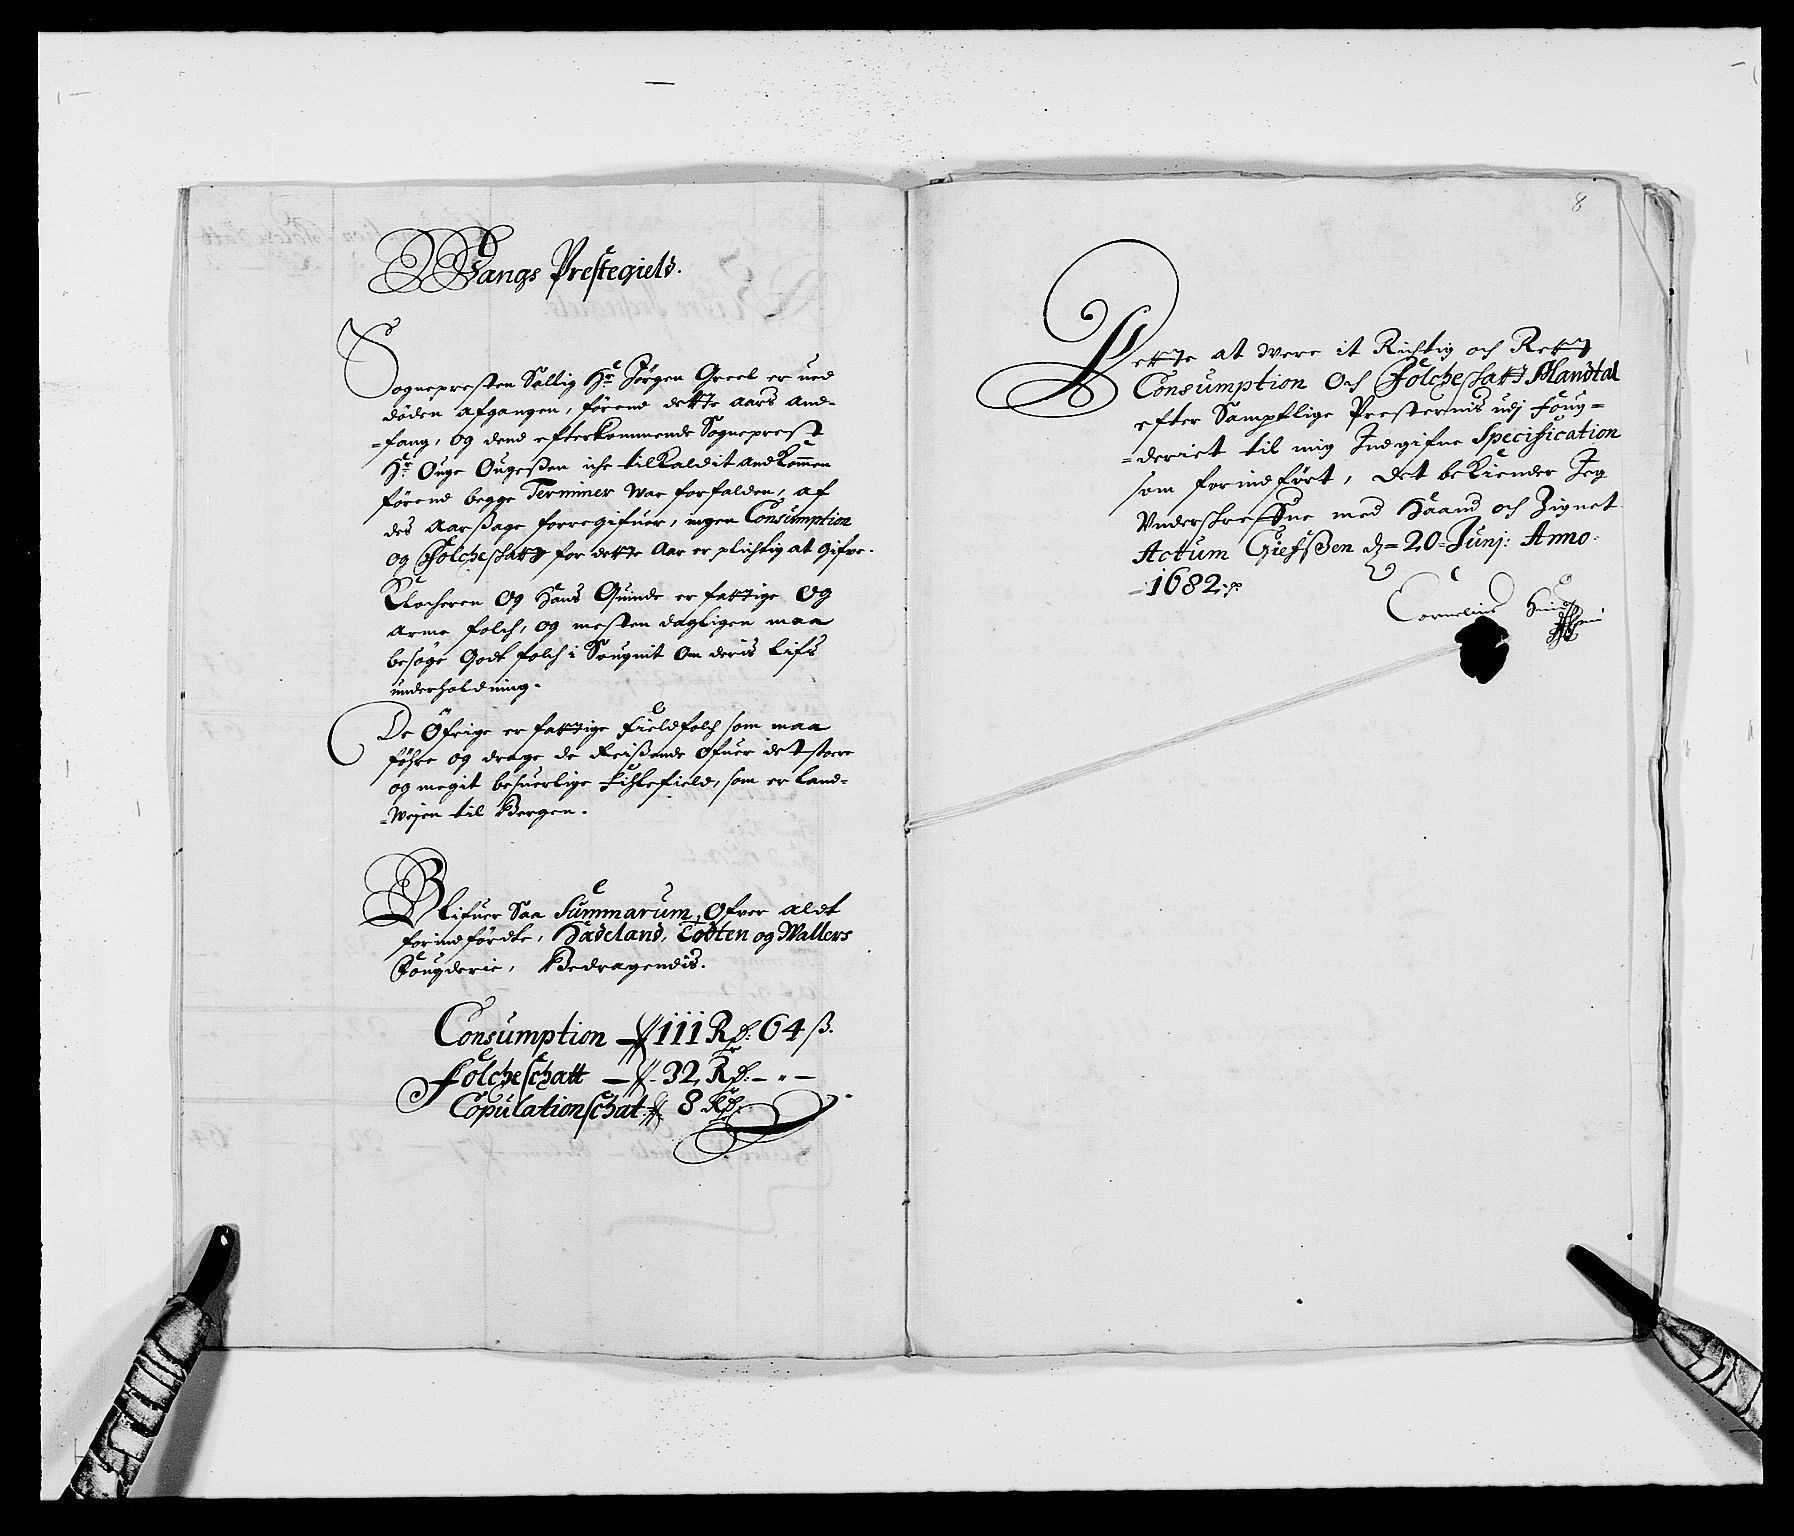 Wangs Prestegield.
Sognepresten Sallig Hr Jørgen Greel er ved
døden afgangen, førend dette Aars And=
=fang, og dend efterkommende Sogneprest
Hr Ouge Ougeßen iche tilkaldit and kommen
førend begge Terminer war forfalden, af
des Aarßage forregifuer, ingen Consumption
og Folcheskatt for dette Aar er plichtig at gifve.
Klocheren og Hans Quinde er fattige og
arme folch, og mesten dagligen maa
besøge Godt folch i Sougnit om deris Lifs
underholdning.
De Øfrige er fattige Fieldfolch som maa
føhre og drage de Reißende ofuer det store
og megit besuerlige Fihlefield, som er Land=
=Wejen til Bergen.
Blifuer Saa Summarum, Ofver aldt
forindførdte, Hadeland, Todten og Wallers
Fougderie, Bedragendis.
Consumption — 111 Rd: 64 ß.
Folcheschatt — 32 Rd: — " —
Copulationschat 8 Rd:
8
Dette at were it Richtig och Rett
Consumption Och Folcheskatt Mandtal
efter Samptlige Presternis udj Foug=
=deriet til mig Indgifne Specification
som forindført, Det bekiender Jeg
Underskrefne med Haand och Zignet
Actum Giefßen d= 20 Junj: Anno:
=1682:
Cornelius